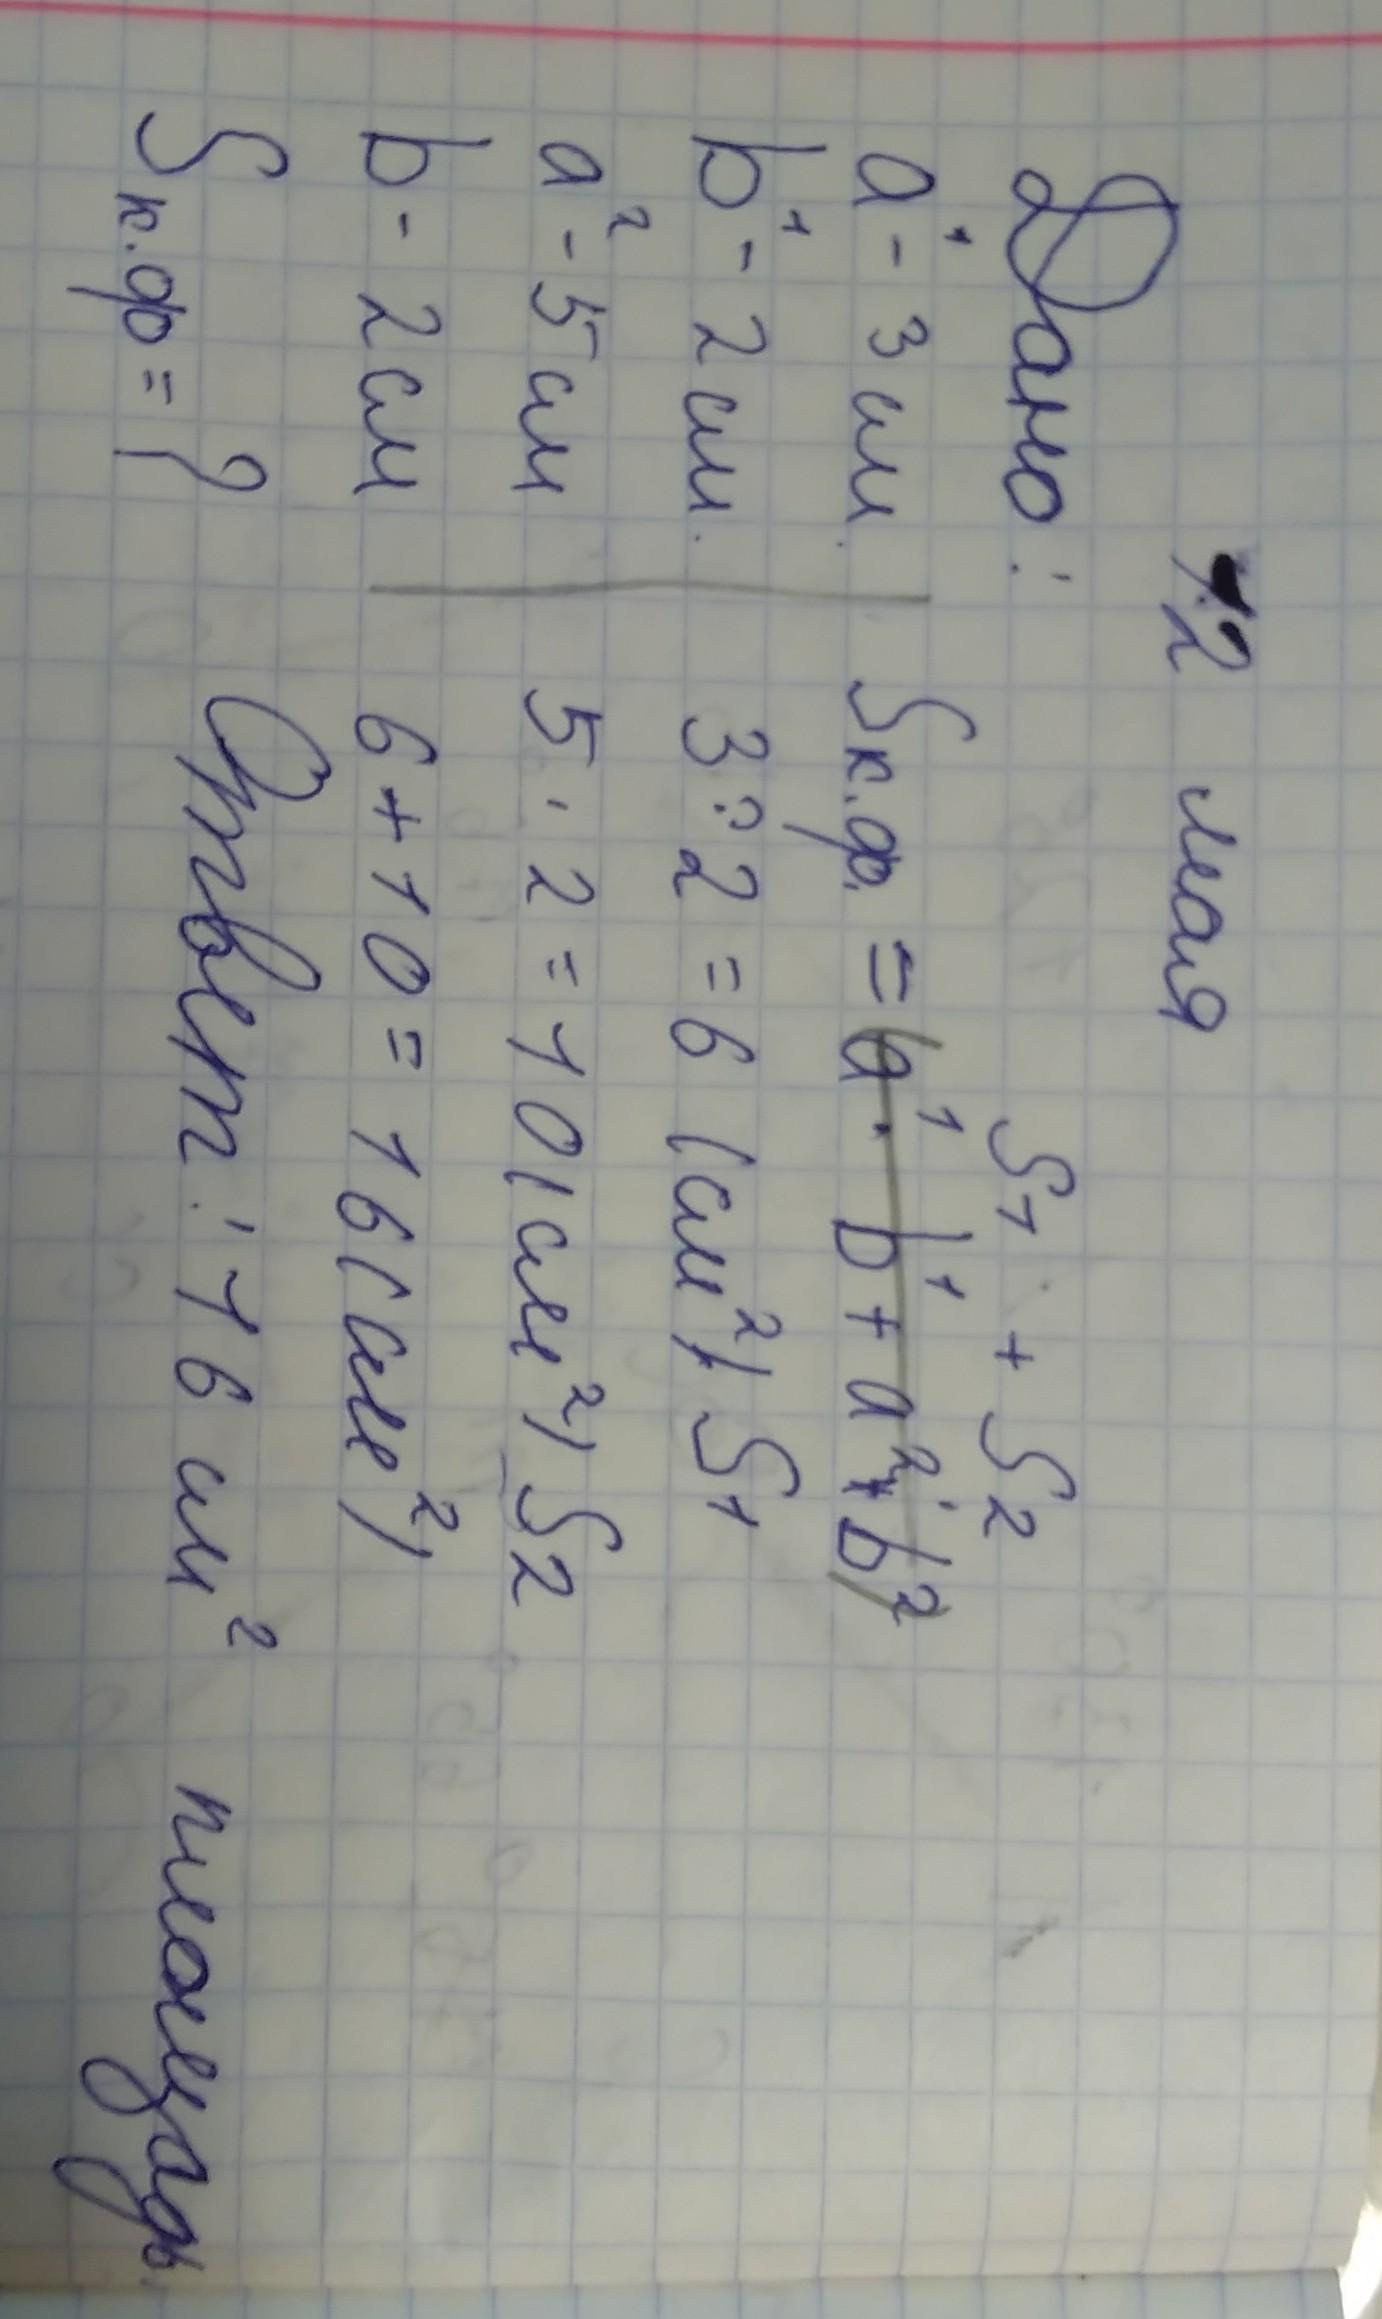 12 мая
Дано:
a¹ - 3 см.
b¹ - 2 см.
a² - 5 см
b - 2 см
Sк.ф = ?
S1 + S2
Sк.ф. = a¹ · b¹ + a² · b²
3 · 2 = 6 (см²) S1
5 · 2 = 10 (см²) S2
6 + 10 = 16 (см²)
Ответ: 16 см² площадь.